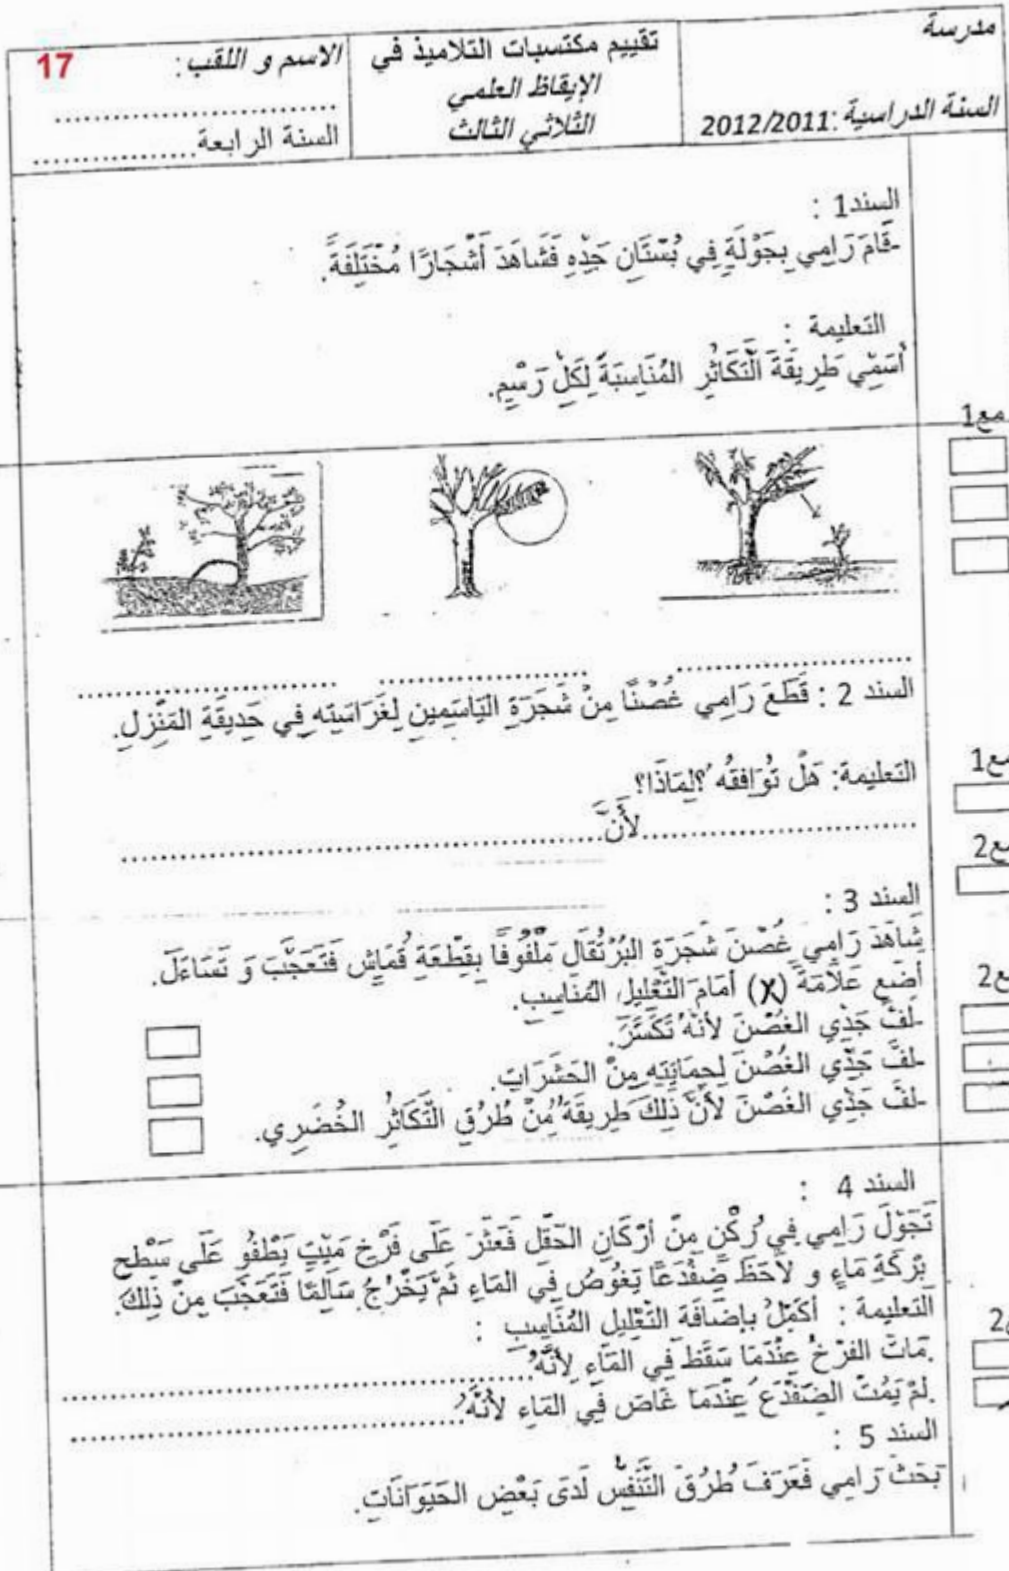 مدرسة
السنة الدراسية: 2012/2011
تقييم مكتسبات التلاميذ في
الإيقاظ العلمي
الثلاثي الثالث
الاسم و اللقب:
17
....................
السنة الرابعة................
السند1 :
-قَامَ رَامِي بِجَوْلَةٍ فِي بُسْتَانِ جَدِّهِ فَشَاهَدَ أَشْجَارًا مُخْتَلِفَةً.
التعليمة :
أُسَمِّي طَرِيقَةَ التَّكَاثُرِ المُنَاسِبَةَ لِكُلِّ رَسْمٍ.
مع1
السند 2 : قَطَعَ رَامِي غُصْنًا مِنْ شَجَرَةِ اليَاسَمِينِ لِغَرَاسَتِه فِي حَدِيقَةِ المَنْزِلِ.
التعليمة: هَلْ تُوَافِقُه ؟لِمَاذَا؟
مع1
..............................لأَنَّ..............................
مع2
السند 3 :
شَاهَدَ رَامِي غُصْنَ شَجَرَةِ البُرْتُقَالِ مَلْفُوفًا بِقِطْعَةِ قُمَاشٍ فَتَعَجَّبَ وَ تَسَاءَلَ.
أَضَعُ عَلاَمَةَ (X) أَمَامَ التَّعْلِيلِ المُنَاسِبِ.
مع2
-لَفَّ جَدِّي الغُصْنَ لأَنَّهُ تَكَسَّرَ.
-لَفَّ جَدِّي الغُصْنَ لِحِمَايَتِهِ مِنَ الحَشَرَاتِ.
-لَفَّ جَدِّي الغُصْنَ لأَنَّ ذَلِكَ طَرِيقَةٌ مِنْ طُرُقِ التَّكَاثُرِ الخُضَرِي.
السند 4 :
تَجَوَّلَ رَامِي فِي رُكْنٍ مِنْ أَرْكَانِ الحَقْلِ فَعَثَرَ عَلَى فَرْخٍ مَيِّتٍ يَطْفُو عَلَى سَطْحِ
بِرْكَةِ مَاءٍ و لاَحَظَ ضِفْدَعًا يَغُوصُ فِي المَاءِ ثُمَّ يَخْرُجُ سَالِمًا فَتَعَجَّبَ مِنْ ذَلِكَ.
التعليمة : أُكْمِلُ بِإضَافَةِ التَّعْلِيلِ المُنَاسِبِ :
.مَاتَ الفَرْخُ عِنْدَمَا سَقَطَ فِي المَاءِ لِأَنَّهُ..............................
.لَمْ يَمُتْ الضِّفْدَعُ عِنْدَمَا غَاصَ فِي المَاءِ لأَنَّهُ..............................
السند 5 :
بَحَثَ رَامِي فَعَرَفَ طُرُقَ التَّنَفُّسِ لَدَى بَعْضِ الحَيَوَانَاتِ.